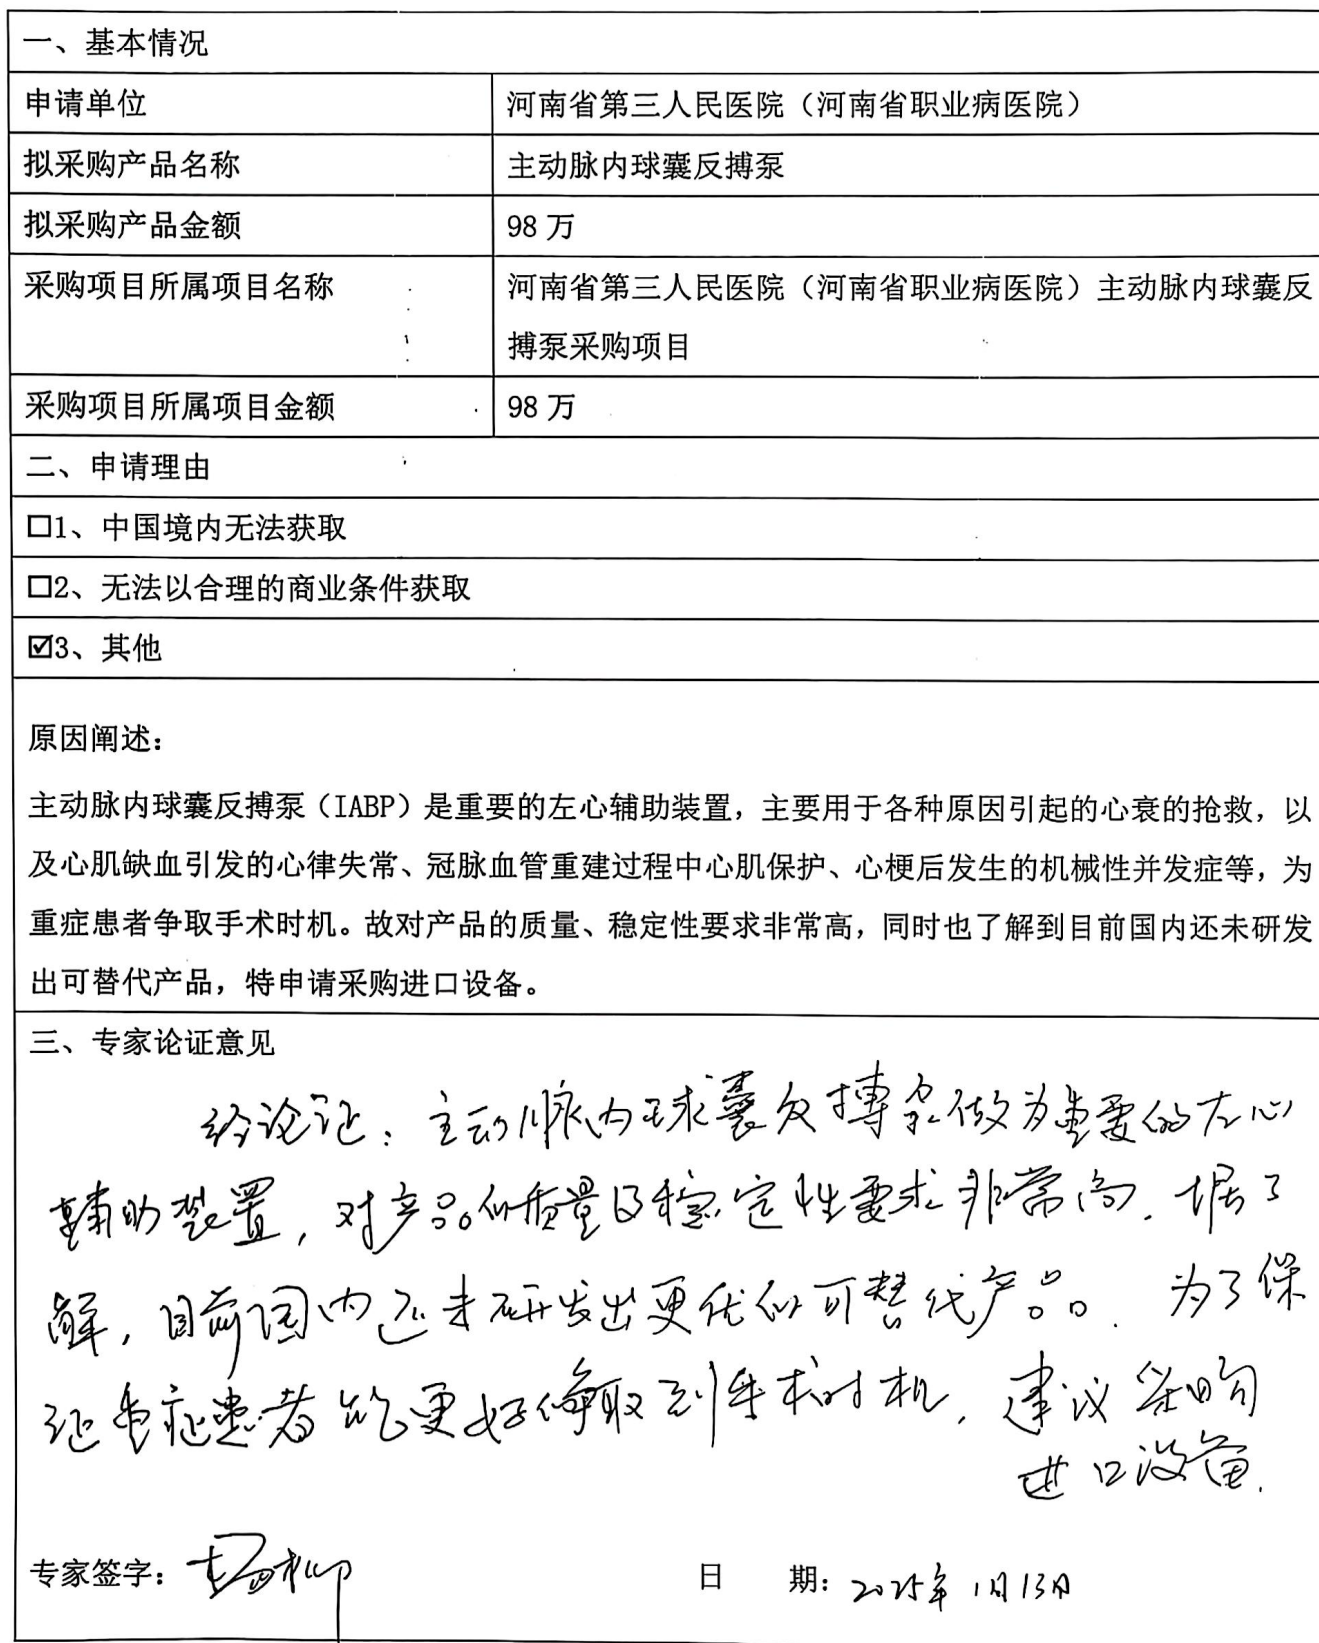 一、基本情况
申请单位 河南省第三人民医院（河南省职业病医院）
拟采购产品名称 主动脉内球囊反搏泵
拟采购产品金额 98 万
采购项目所属项目名称 河南省第三人民医院（河南省职业病医院）主动脉内球囊反
搏泵采购项目
采购项目所属项目金额 98 万
二、申请理由
☐1、中国境内无法获取
☐2、无法以合理的商业条件获取
☑3、其他
原因阐述：
主动脉内球囊反搏泵（IABP）是重要的左心辅助装置，主要用于各种原因引起的心衰的抢救，以
及心肌缺血引发的心律失常、冠脉血管重建过程中心肌保护、心梗后发生的机械性并发症等，为
重症患者争取手术时机。故对产品的质量、稳定性要求非常高，同时也了解到目前国内还未研发
出可替代产品，特申请采购进口设备。
三、专家论证意见
经论证：主动脉内球囊反搏泵做为重要的左心
辅助装置，对产品的质量及稳定性要求非常高．据了
解，目前国内还未研发出更优的可替代产品．为了保
证重症患者能更好争取到手术时机，建议采购
进口设备.
专家签字： 日 期：2025年1月13日